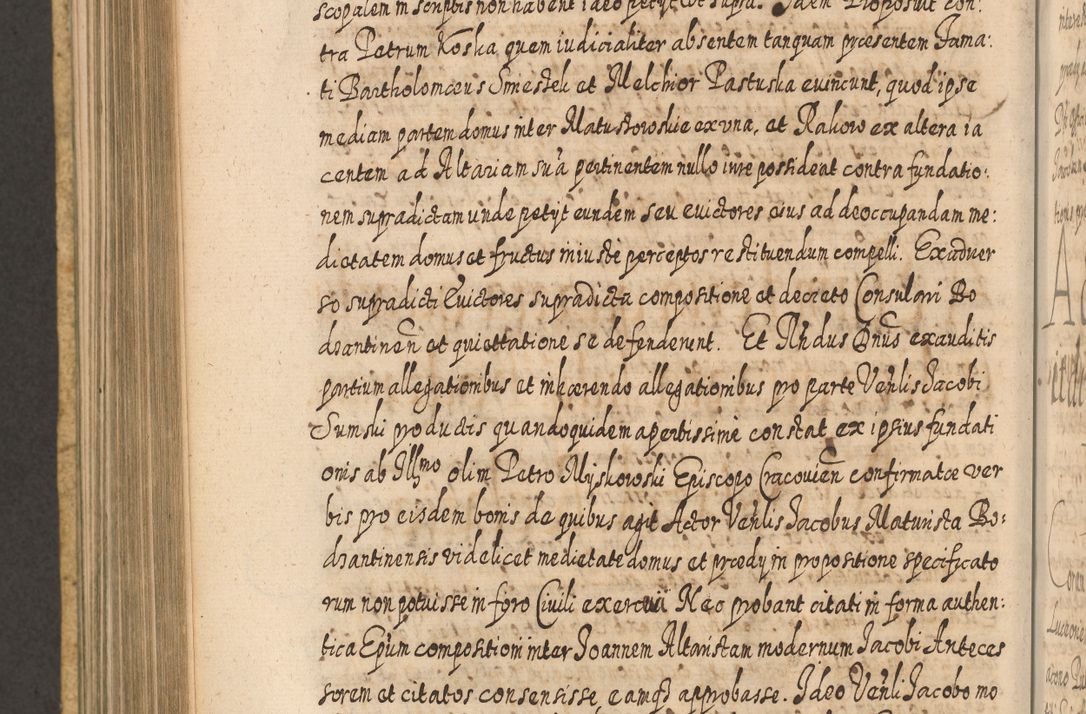 scopalem in scriptis non habent ideo petyt ut supra. Idem Proposuit con:
tra Petrum Koska quem iudicialiter absentem tanquam præsentem Fama:
ti Bartholomæus Smiestek et Melchior Pastuska evincunt, quod ipse
mediam partem domus inter Matustowskie ex una, et Rakow ex altera ia
centem ad Altariam sua pertinentem nullo iure possideat contra fundatio:
nem supradictam unde petyt eundem seu evictores eius ad deoccupandam me:
dietatem domus et fructus iniuste perceptos restituendum compelli. Ex adver
so supradicti Evictores supradicta compositione et decreto Consulari Bo
dzantinen et quiettatione se defenderunt. Et Rndus Dnus exauditis
partium allegationibus et inhærendo allegationibus pro parte Venlis Jacobi
Sumski productis quandoquidem apertissime constat ex ipsius fundati
onis ab Illmo olim Petro Myskowski Episcopo Cracovien confirmatæ ver
bis pro eisdem bonis de quibus agit Actor Venlis Jacobus Maturista Bo:
dzantinensis videlicet medietate domus et prædy in propositione specificato
rum non potuisse in foro Civili exerceri Nec probant citati in forma authen:
tica Epum compositioni inter Joannem Altaristam modernum Jacobi Anteces
sorem et citatos consensisse, eamq3 approbasse. Ideo Venli Jacobo mo